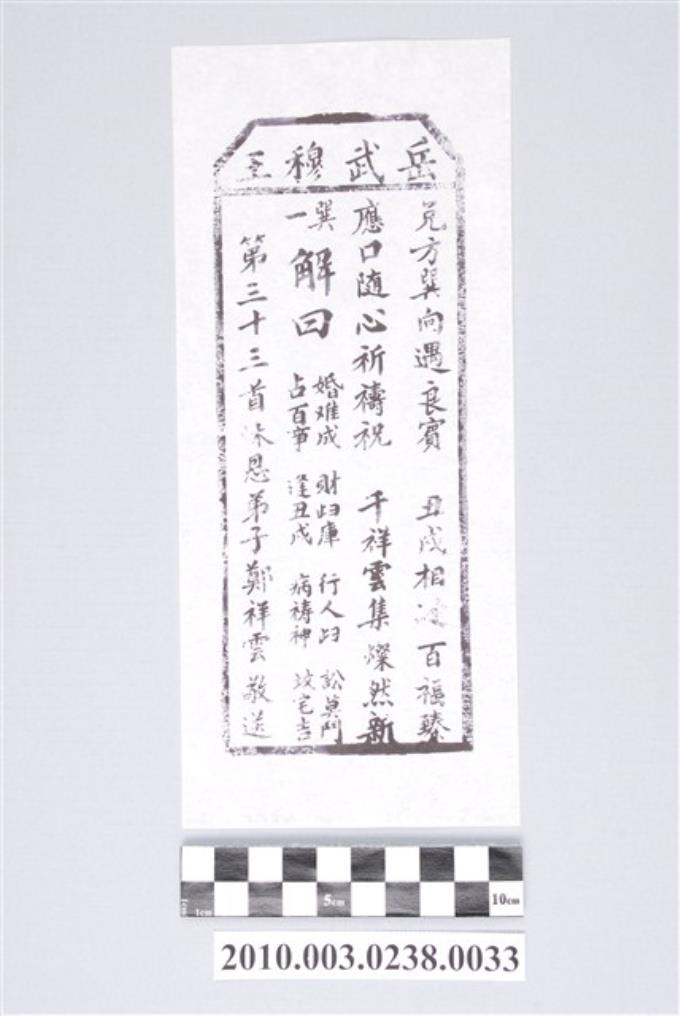 岳武穆王
兌方巽向遇良賓 丑戌相逢百福臻
應口隨心祈禱祝 千祥雲集燦然新
巽一
解曰
婚难成 財歸庫 行人歸 訟莫鬥
占百事 逢丑戌 病禱神 墳宅吉
第三十三首 沐恩弟子鄭祥雲敬送
1cm
1cm
5cm
10cm
2010.003.0238.0033